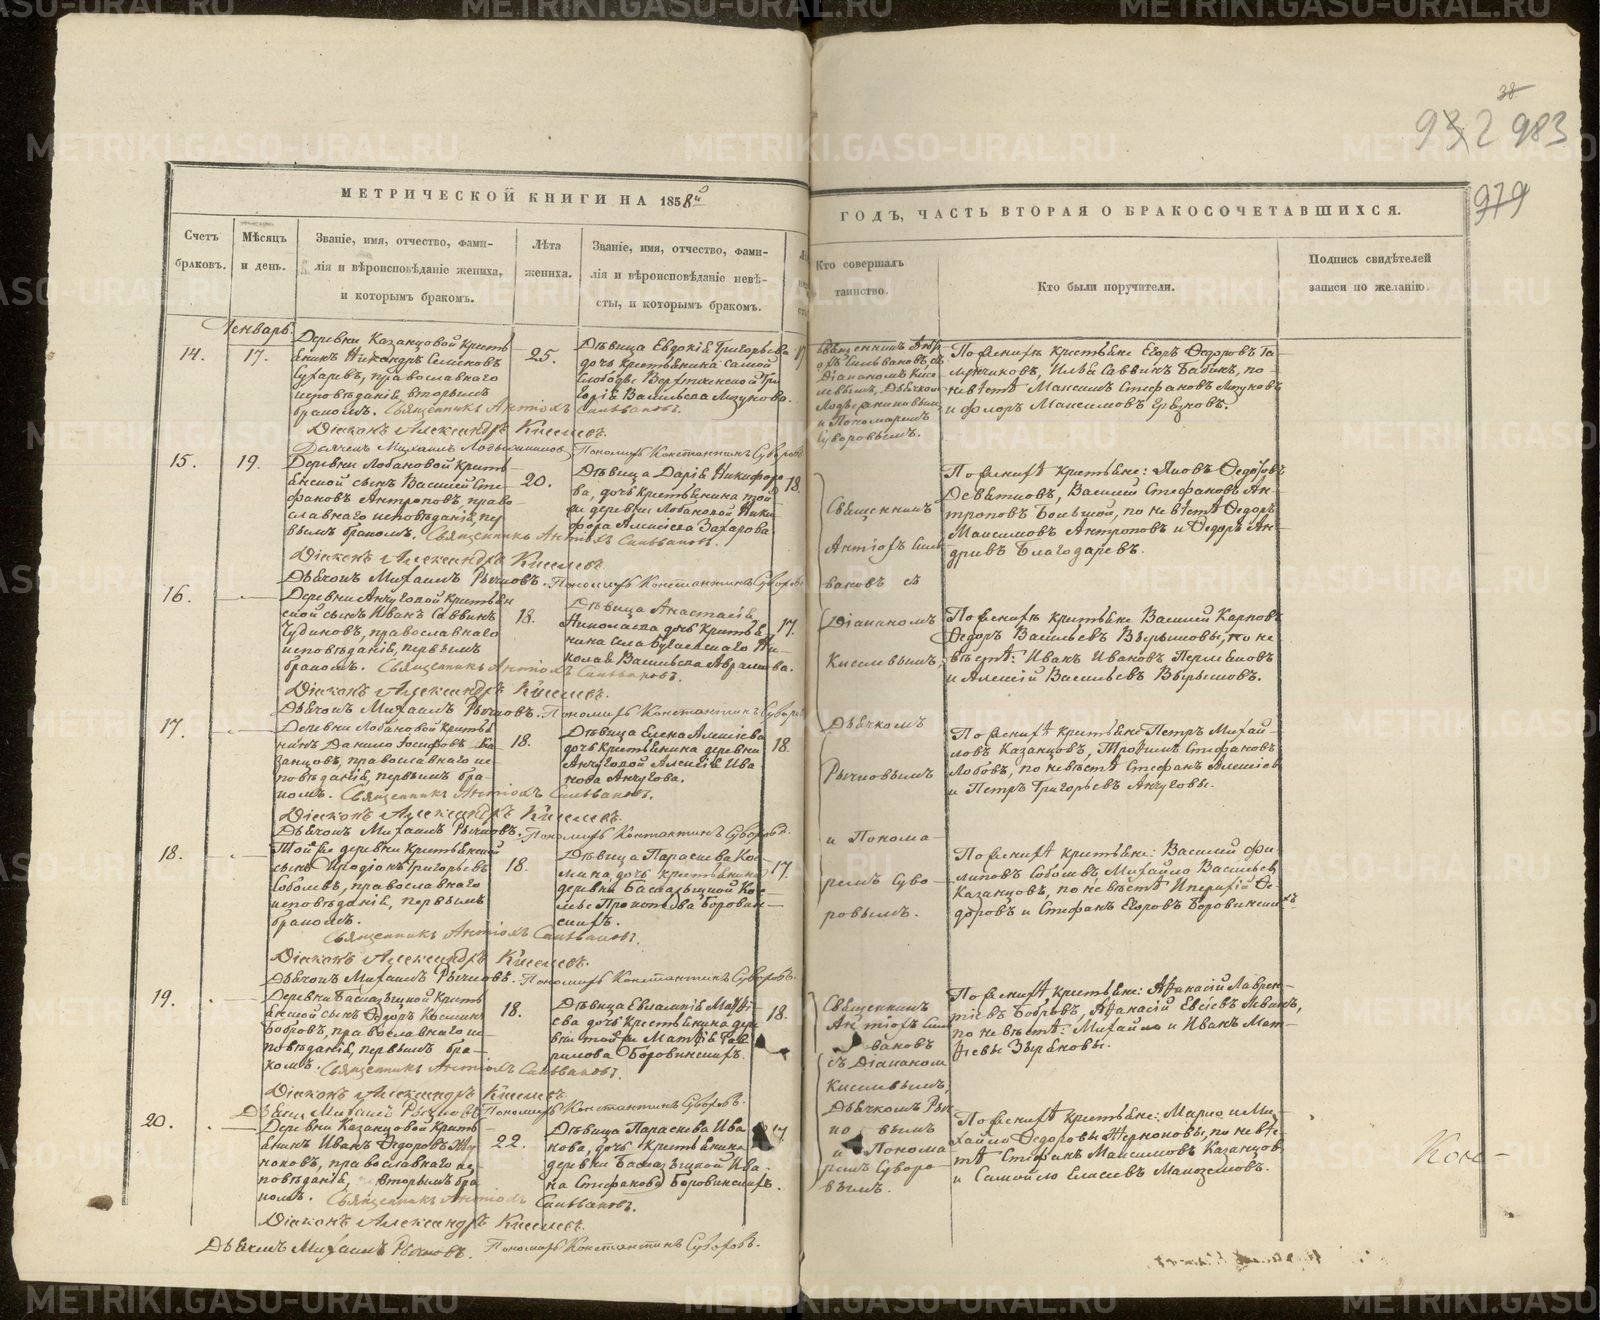 38
932 983
979
МЕТРИЧЕСКОЙ КНИГИ НА 1858й
ГОДЪ, ЧАСТЬ ВТОРАЯ О БРАКОСОЧЕТАВШИХСЯ.
Счетъ
браковъ.
Мѣсяцъ
и день.
Званіе, имя, отчество, фами-
лія и вѣроисповѣданіе жениха,
и которымъ бракомъ.
Лѣта
жениха.
Званіе, имя, отчество, фами-
лія и вѣроисповѣданіе невѣ-
сты, и которымъ бракомъ.
Кто совершалъ
таинство.
Кто были поручители.
Подпись свидѣтелей
записи по желанію.
Генварь.
14.
17.
Деревни Казанцовой кресть
янинъ Семеновъ
Сухаревъ, православнаго
исповѣданія, вторымъ
бракомъ. Священникъ Антіохъ Сильвановъ.
Діаконъ Александръ Киселевъ.
Дьячекъ Михаилъ Пономарь Константинъ Суворовъ
25.
Дѣвица Евдокія Григорьева
дочь крестьянина самой
слободы Гри
горія Васильева
17
Священникъ
Сильвановъ съ
Діакономъ Кисе
левымъ, Дьячкомъ
и Пономаремъ
Суворовымъ.
По женихѣ крестьяне Егоръ Федоровъ
Илья Саввинъ по
невѣстѣ Максимъ Стефановъ
и Флоръ Максимовъ
15.
19.
Деревни Лобановой кресть
янской сынъ Василій Сте
фановъ Антроповъ, право
славнаго исповѣданія, пер
вымъ бракомъ. Священникъ Антіохъ Сильвановъ.
Діаконъ Александръ Киселевъ.
Дьячокъ Михаилъ Рычковъ. Пономарь Константинъ Суворовъ
20.
Дѣвица Дарія Никифоро
ва, дочь крестьянина той
же деревни Лобановой Ники
фора Алексіева Захарова
18.
Священникъ
Антіохъ Силь
вановъ съ
По женихѣ крестьяне: Яковъ Федотовъ
Девятковъ, Василій Стефановъ Ан-
троповъ Большой, по невѣстѣ Федоръ
Максимовъ Антроповъ и Федоръ Ан-
дріевъ Благодаревъ.
16.
Деревни Анчуговой крестьян
ской сынъ Иванъ Саввинъ
Чудиновъ, православнаго
исповѣданія, первымъ
бракомъ. Священникъ Антіохъ Сильвановъ.
Діаконъ Александръ Киселевъ.
Дьячокъ Михаилъ Рычковъ. Пономарь Константинъ Суворовъ
18.
Дѣвица Анастасія
Николаева дочь крестья
нина села Ни-
колая Васильева
17.
Діакономъ
Киселевымъ,
Дьячкомъ
По женихѣ крестьяне Василій Карповъ
Федоръ Васильевъ по не
вѣстѣ: Иванъ Ивановъ Пермяковъ
и Алексій Васильевъ
17.
Деревни Лобановой крестья
нинъ Данило Іосифовъ Ка
занцовъ, православнаго ис
повѣданія, первымъ бра-
комъ. Священникъ Антіохъ Сильвановъ.
Діаконъ Александръ Киселевъ.
Дьячокъ Михаилъ Рычковъ. Пономарь Константинъ Суворовъ.
18.
Дѣвица Елена Алексіева
дочь крестьянина деревни
Анчуговой Алексія Ива
нова Анчугова.
18.
Рычковымъ
По женихѣ крестьяне Петръ Михай-
ловъ Казанцовъ, Трофимъ Стефановъ
Лобовъ, по невѣстѣ Стефанъ Алексіев
и Петръ Григорьевъ Анчуговы.
18.
Той же деревни крестьянской
сынъ Иродіонъ Григорьевъ
Соболевъ, православнаго
исповѣданія, первымъ
бракомъ.
Священникъ Антіохъ Сильвановъ.
Діаконъ Александръ Киселевъ.
Дьячокъ Михаилъ Рычковъ. Пономарь Константинъ Суворовъ.
18.
Дѣвица Параскева Кос-
мина, дочь крестьянина
деревни Кос-
мы Прокопьева Боровин-
скихъ.
17.
и Понома-
ремъ Суво-
ровымъ.
По женихѣ крестьяне: Василій Фи-
липовъ Соболевъ, Михайло Васильев
Казанцовъ, по невѣстѣ Фе-
доровъ и Стефанъ Егоровъ Боровинскихъ.
19.
Деревни кресть
янской сынъ Федоръ Космин
Бобровъ, православнаго ис-
повѣданія, первымъ бра-
комъ. Священникъ Антіохъ Сильвановъ.
Діаконъ Александръ Киселевъ.
Дьячекъ Михаилъ Рычковъ Пономарь Константинъ Суворовъ.
18.
Дѣвица Евлампія Матѳі-
ева дочь крестьянина дере
вни той же Матѳія
Боровинскихъ.
18.
Священникъ
Антіохъ Силь
вановъ
съ Діакономъ
Киселевымъ,
По женихѣ крестьяне: Афанасій Лаврен-
тіевъ Бобровъ, Афанасій Евсіевъ
по невѣстѣ: Михайло и Иванъ Мат-
ѳіевы Зыряновы.
20.
Деревни Казанцовой кресть
янинъ Иванъ Федоровъ
православнаго ис-
повѣданія, вторымъ бра
комъ. Священникъ Антіохъ Сильвановъ.
Діаконъ Александръ Киселевъ.
Дьячекъ Михаилъ Рычковъ. Пономарь Константинъ Суворовъ.
22.
Дѣвица Параскева Ива
нова, дочь крестьянина
деревни Ива-
на Стефанова Боровинскихъ.
Дьячкомъ Рыч
ковымъ
и Понома-
ремъ Суворо-
вымъ.
По женихѣ крестьяне: Марко и Ми-
хайло Федоровы по невѣс-
тѣ Стефанъ Максимовъ Казанцов
и Самойло Елисіевъ
METRIKI.GASO-URAL.RU